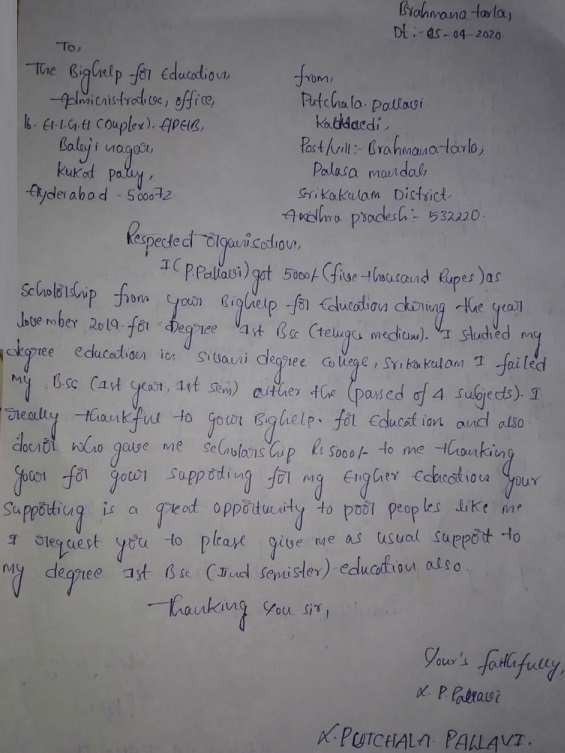 Brahmana tarla,
Dt:- 05-04-2020
To,
The Bighelp for Education,
Administrative, office,
from,
Putchala. pallavi
Balaji nagar,
Post/vill:- Brahmana tarla,
Kukat pally,
Palasa mandal,
Hyderabad - 500072
Srikakulam District.
Andhra pradesh - 532220.
Respected Organisation,
I (P.Pallavi) got 5000/- (five thousand Rupes) as
scholorship from your Bighelp for Education during the year
November 2019 for Degree 1st Bsc (telugu medium). I studied my
degree education in Sivani degree College, Srikakulam I failed
my Bsc (1st year, 1st sem) the (passed of 4 subjects). I
really thankful to your Bighelp. for Education and also
donor who gave me scholarship Rs 5000/- to me thanking
your for your supporting for my Higher Education your
Supporting is a great opportunity to poor peoples like me
I request you to please give me as usual support to
my degree 1st Bsc (IInd semister) education also.
Thanking you sir,
Your's faithfully,
P. Pallavi
PUTCHALA. PALLAVI.